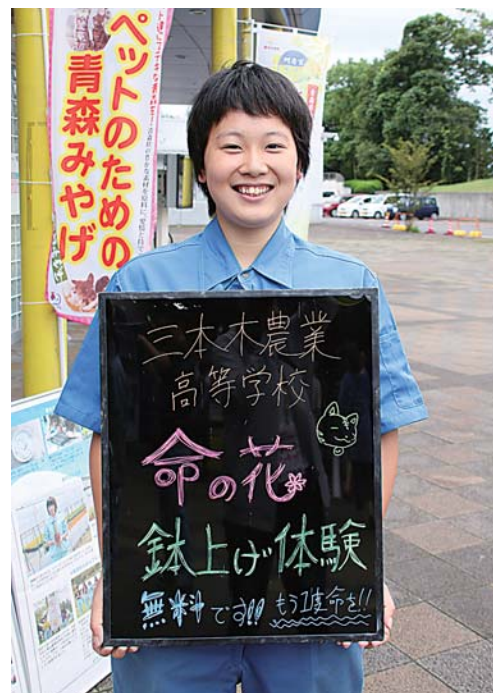 ペットのための
青森みやげ
三本木農業
高等学校
命の花
鉢上げ体験
無料です!! もう1度命を!!